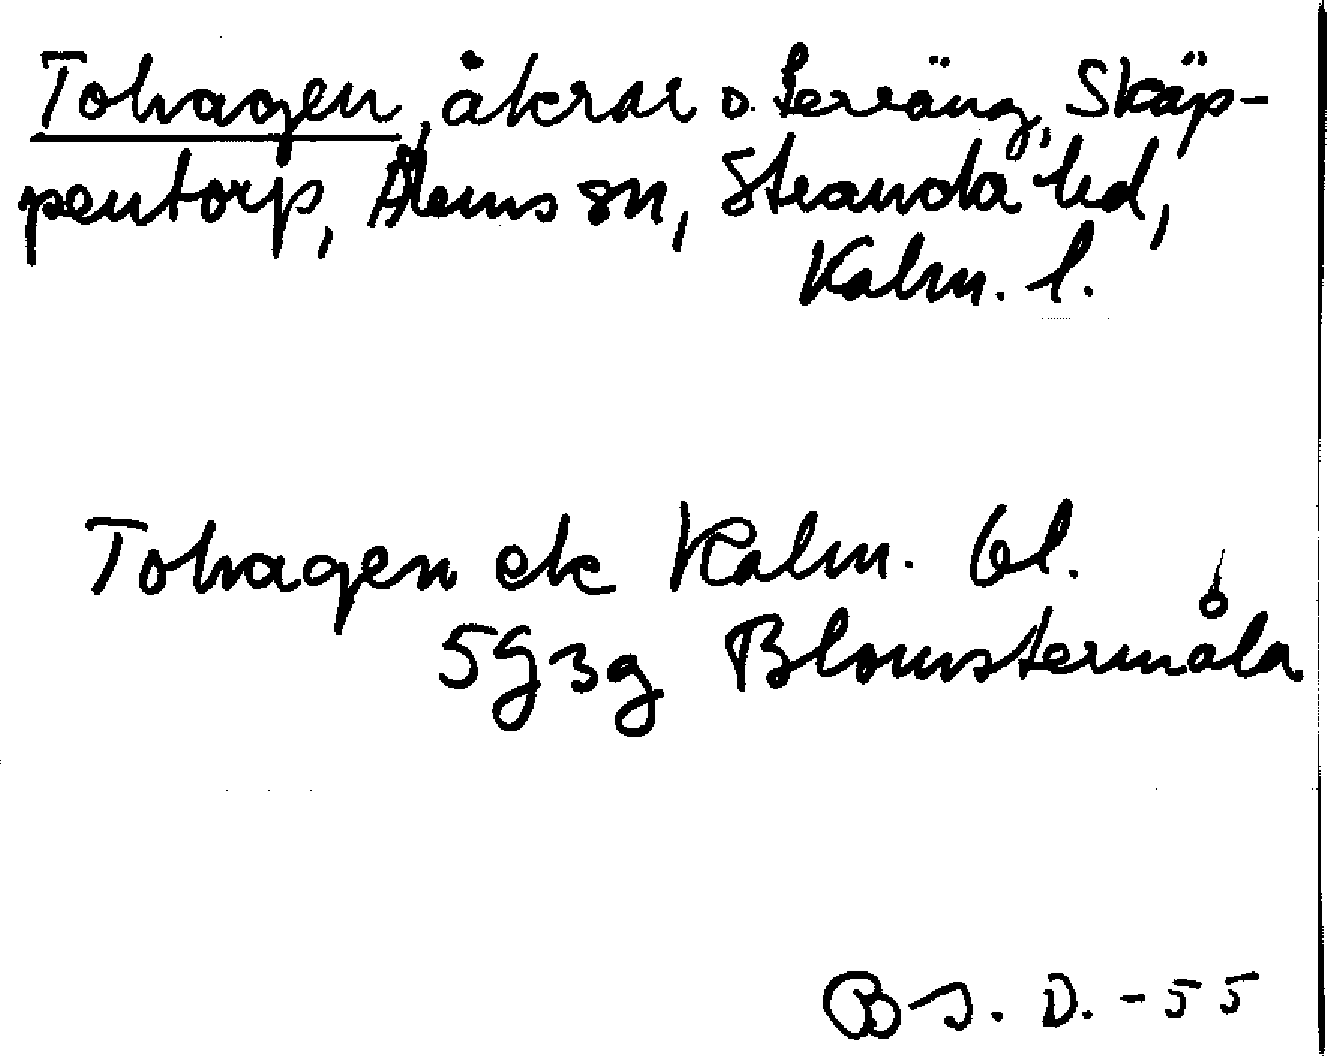 Tohagen, åkrar o. terräng, Skäp-
pentorp, Ålems sn, Stranda hd,
Kalm. l.
Tohagen ek Kalm. bl.
5g3g Blomstermåla
B J. D. -55